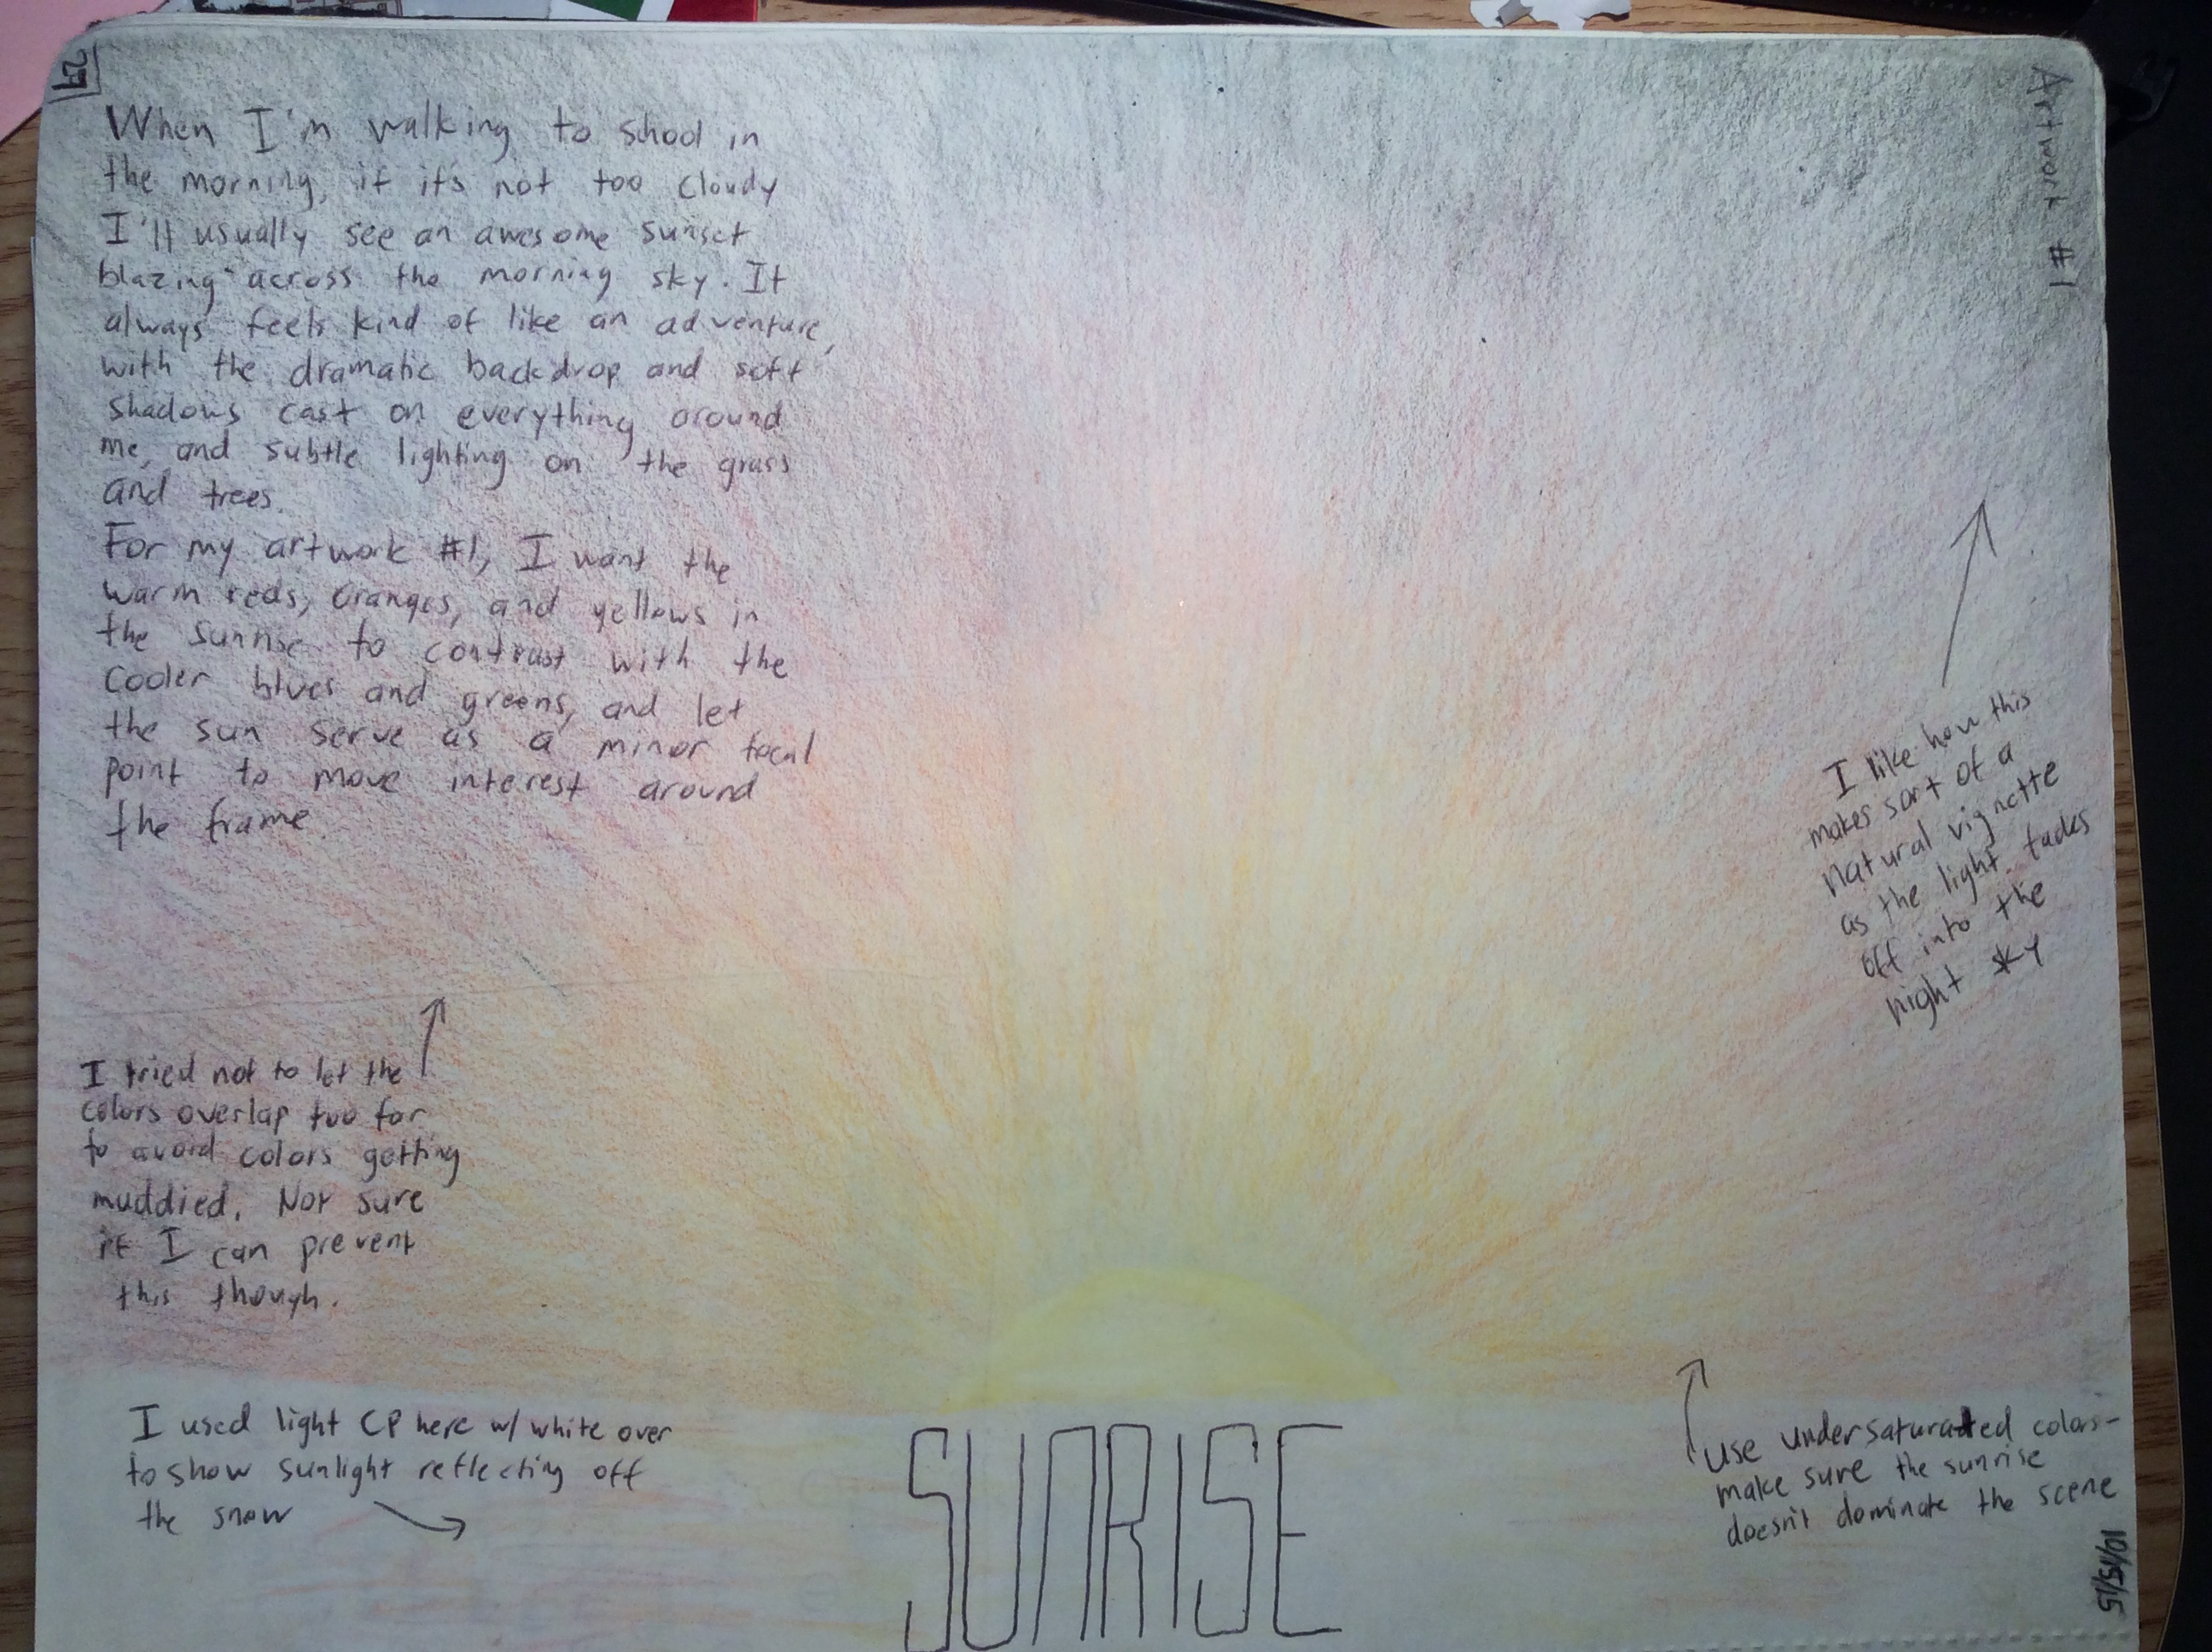 27
Artwork #1
When I'm walking to school in
the morning, if it's not too cloudy
I'll usually see an awesome sunset
blazing across the morning sky. It
always feels kind of like an adventure,
with the dramatic backdrop and soft
shadows cast on everything around
me, and subtle lighting on the grass
and trees.
For my artwork #1, I want the
warm reds, oranges, and yellows in
the sunrise to contrast with the
cooler blues and greens, and let
the sun serve as a minor focal
point to move interest around
the frame.
I like how this
makes sort of a
natural vignette
as the light fades
off into the
night sky
I tried not to let the
colors overlap too far
to avoid colors getting
muddied. Not sure
if I can prevent
this though.
I used light CP here w/ white over
to show sunlight reflecting off
the snow
SUNRISE
use undersaturated colors-
make sure the sunrise
doesn't dominate the scene
10/15/15